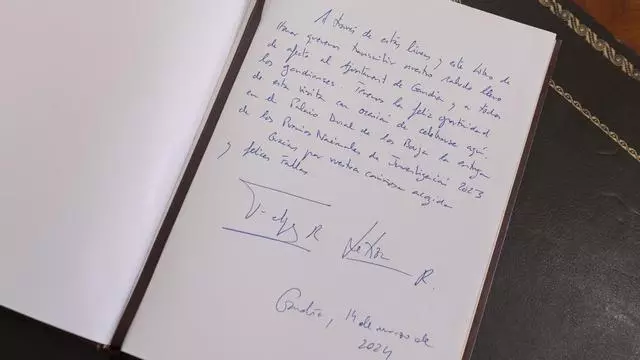 A través de estas líneas y este Libro de
Honor queremos transmitir nuestro saludo lleno
de afecto al Ajuntament de Gandía y a todos
los gandienses. Tenemos la feliz oportunidad
de esta visita con ocasión de celebrarse aquí,
en el Palacio Ducal de los Borja la entrega
de los Premios Nacionales de Investigación 2023
Gracias por vuestra cariñosa acogida
y felices Fallas
R
R.
Gandía, 14 de marzo de
2024